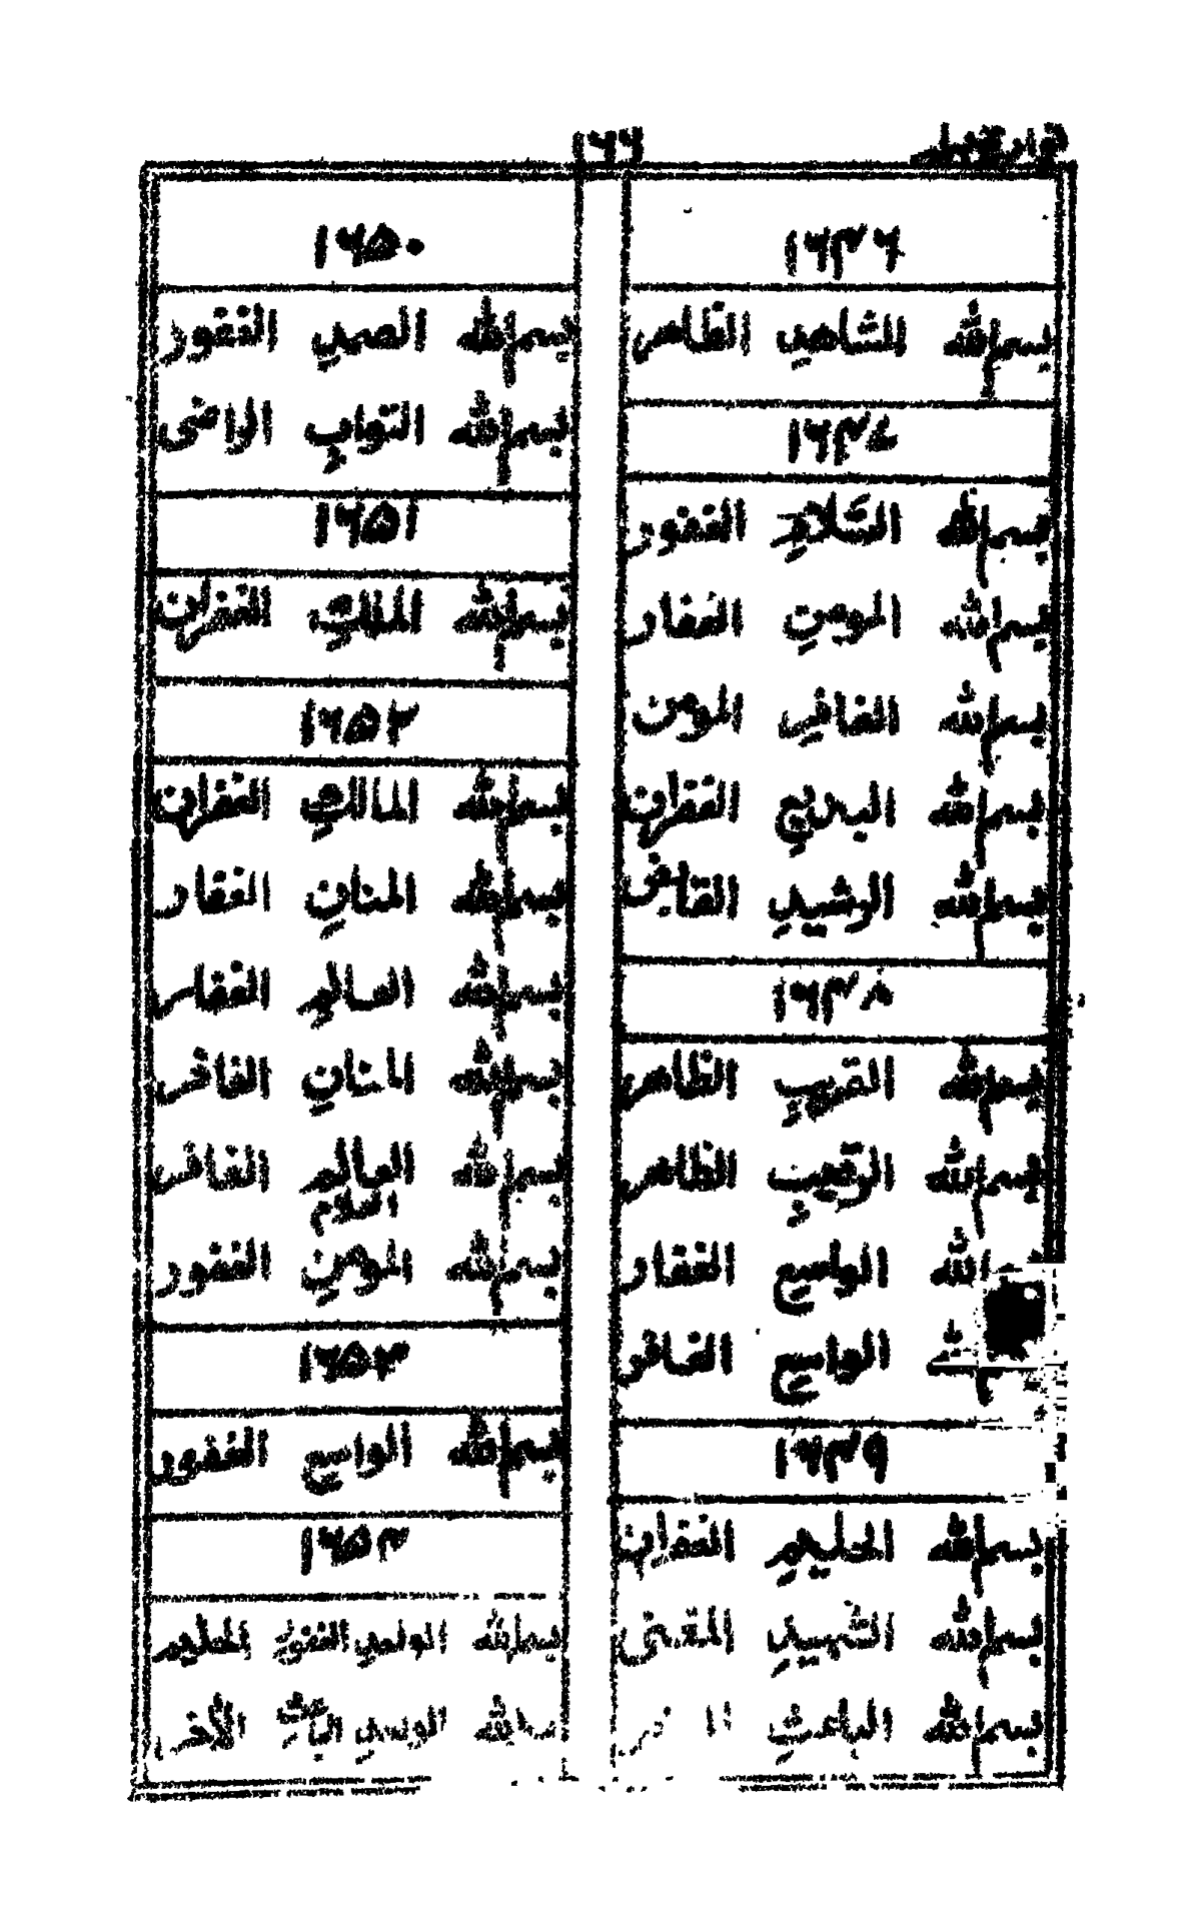 ۱۶۶
۱۶۴۶
بسم الله الشاهد الظاهر
۱۶۴۷
بسم الله السلام الغفور
بسم الله المومن الغفار
بسم الله الغافر المومن
بسم الله البديع الغفران
بسم الله الرشيد القابض
۱۶۴۸
بسم الله القريب الظاهر
بسم الله الرقيب الظاهر
الله الواسع الغفار
الواسع الغافر
۱۶۴۹
بسم الله الحليم الغفران
بسم الله الشهيد المغنى
بسم الله الباعث
۱۶۵۰
بسم الله الصمد الغفور
بسم الله التواب الراضى
۱۶۵۱
بسم الله الملك الغفران
۱۶۵۲
بسم الله المالك الغفران
بسم الله المنان الغفار
بسم الله العالم الغفار
بسم الله المنان الغافر
بسم الله العالم الغافر
السلام
بسم الله المومن الغفور
۱۶۵۳
بسم الله الواسع الغفور
۱۶۵۴
بسم الله الواحد الغفور الحليم
بسم الله الباعث الآخر